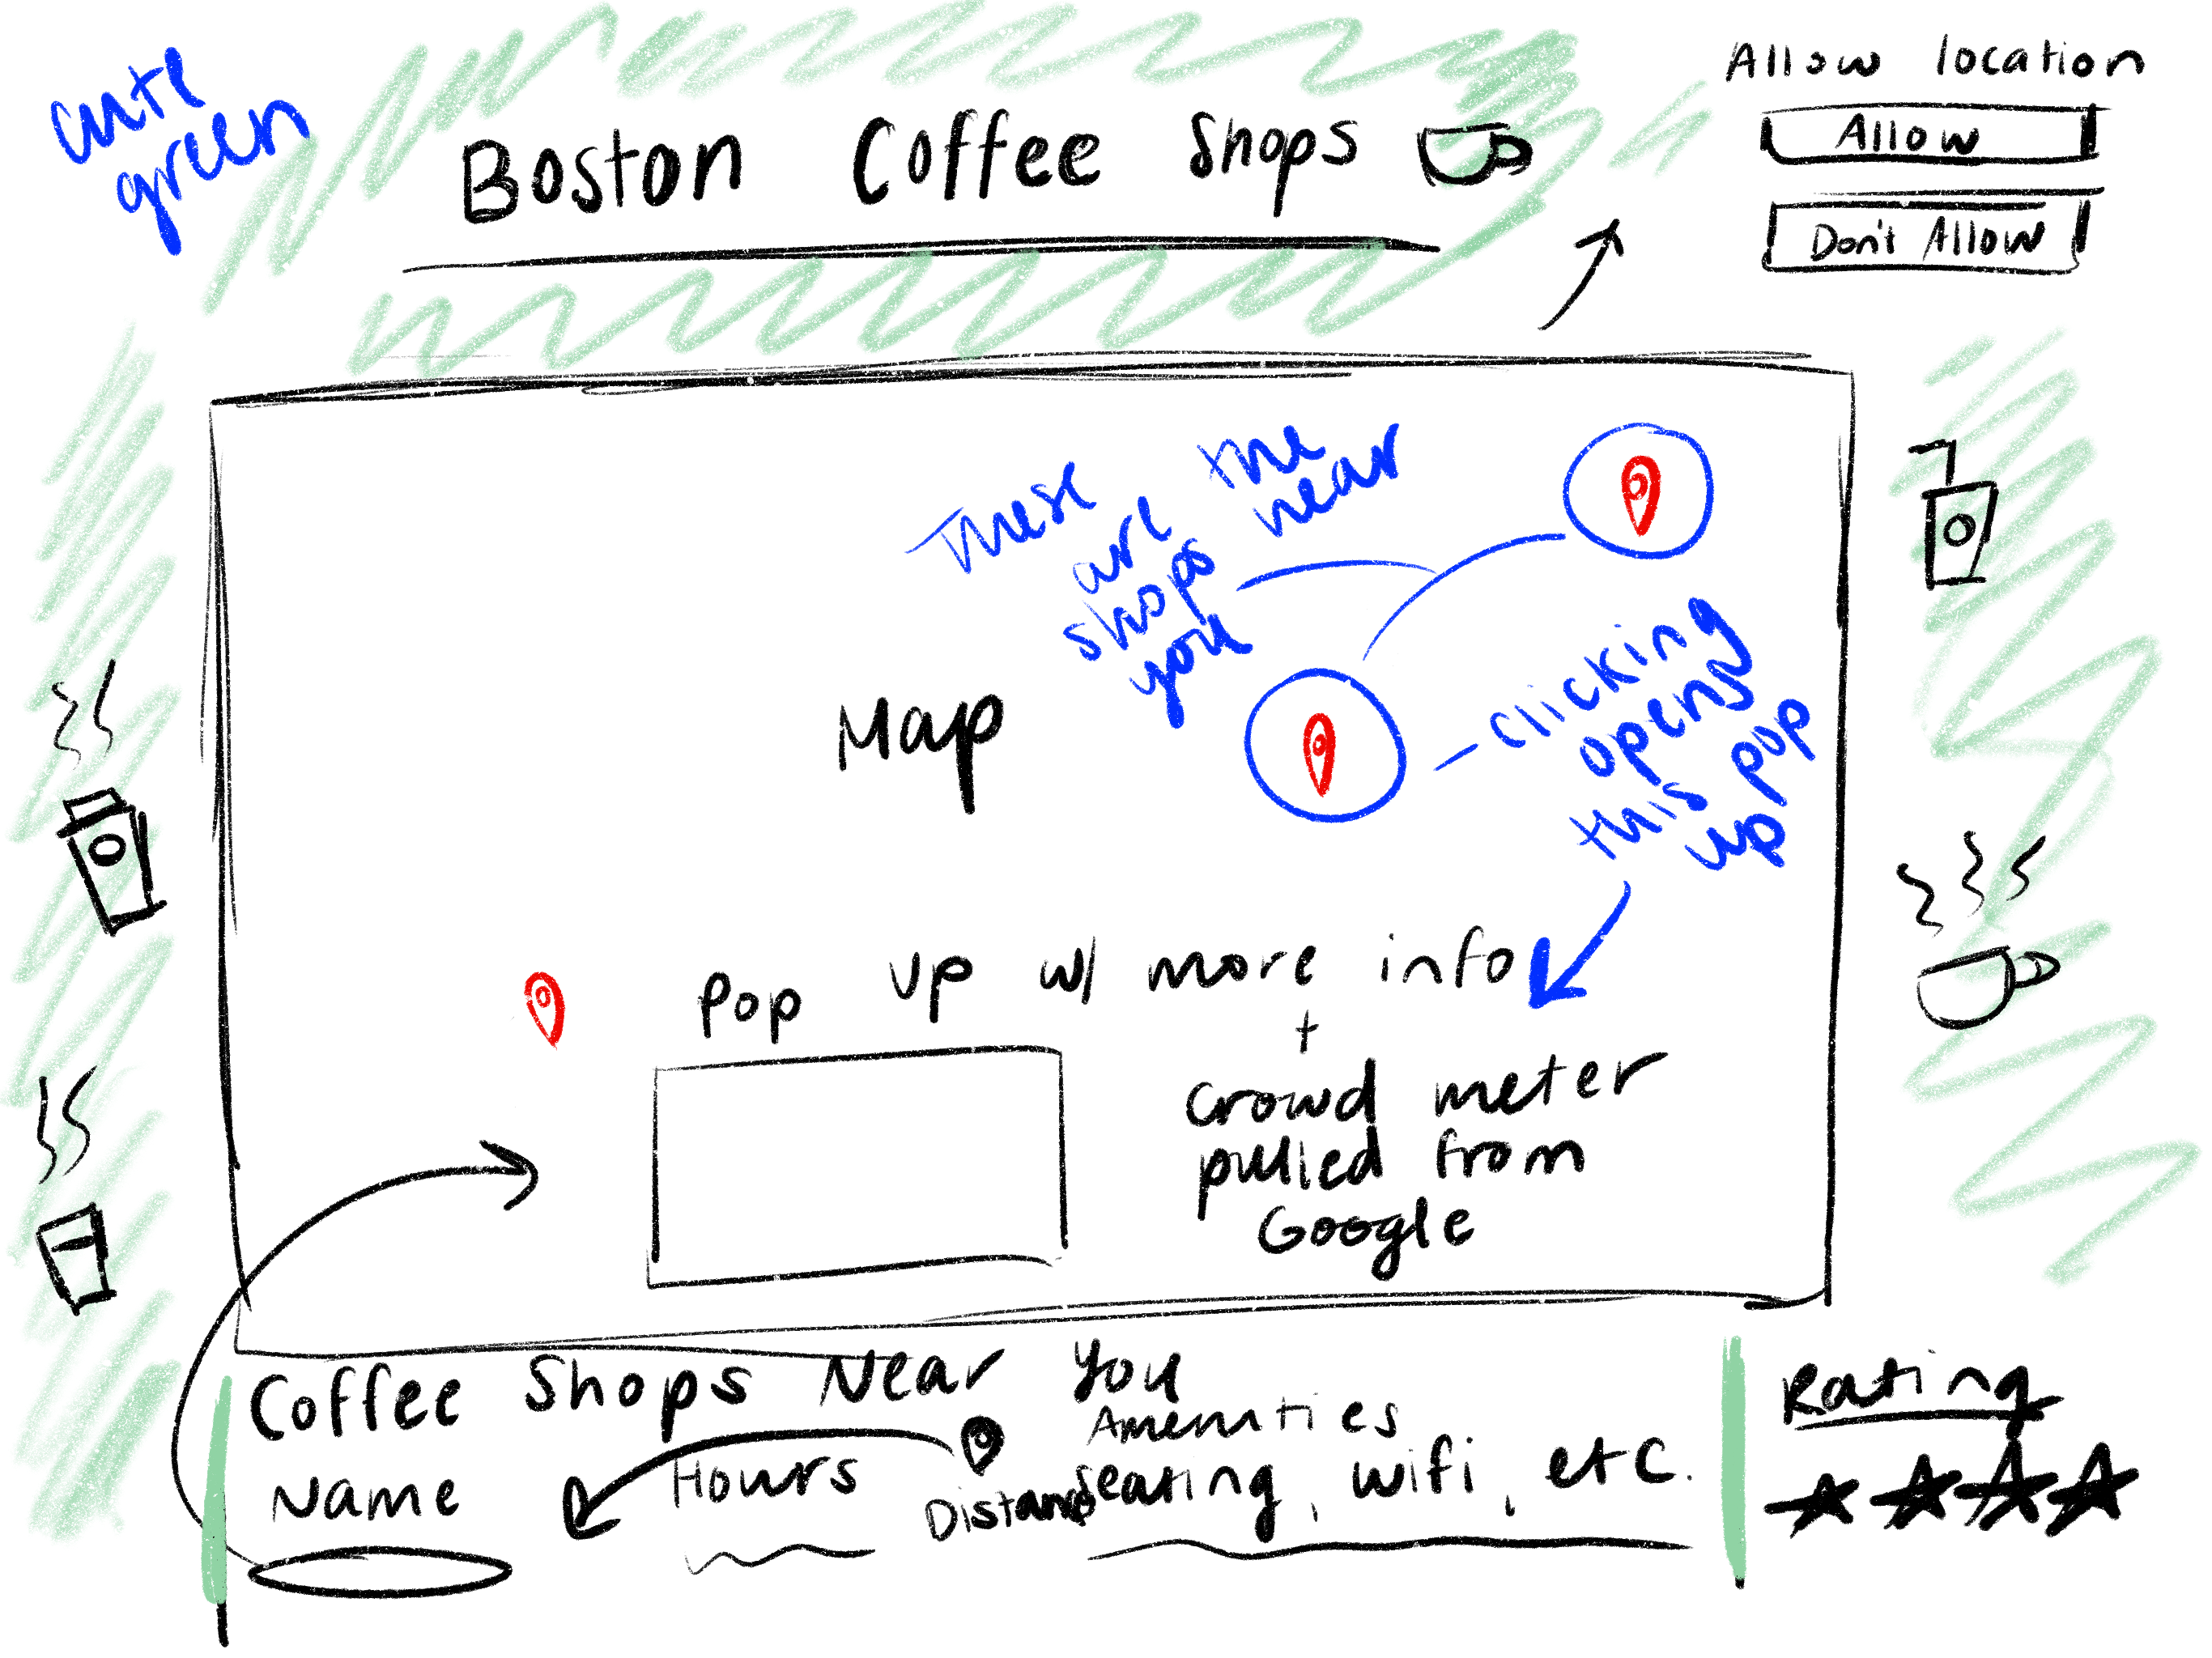 cute
green
Boston Coffee Shops
Allow location
Allow
Don't Allow
These are the
shops near
you
Map
- clicking
opens
this pop
up
Pop up w/ more info
+
crowd meter
pulled from
Google
Coffee Shops Near You
Name
Hours
Distance
Amenities
seating, wifi, etc.
Rating